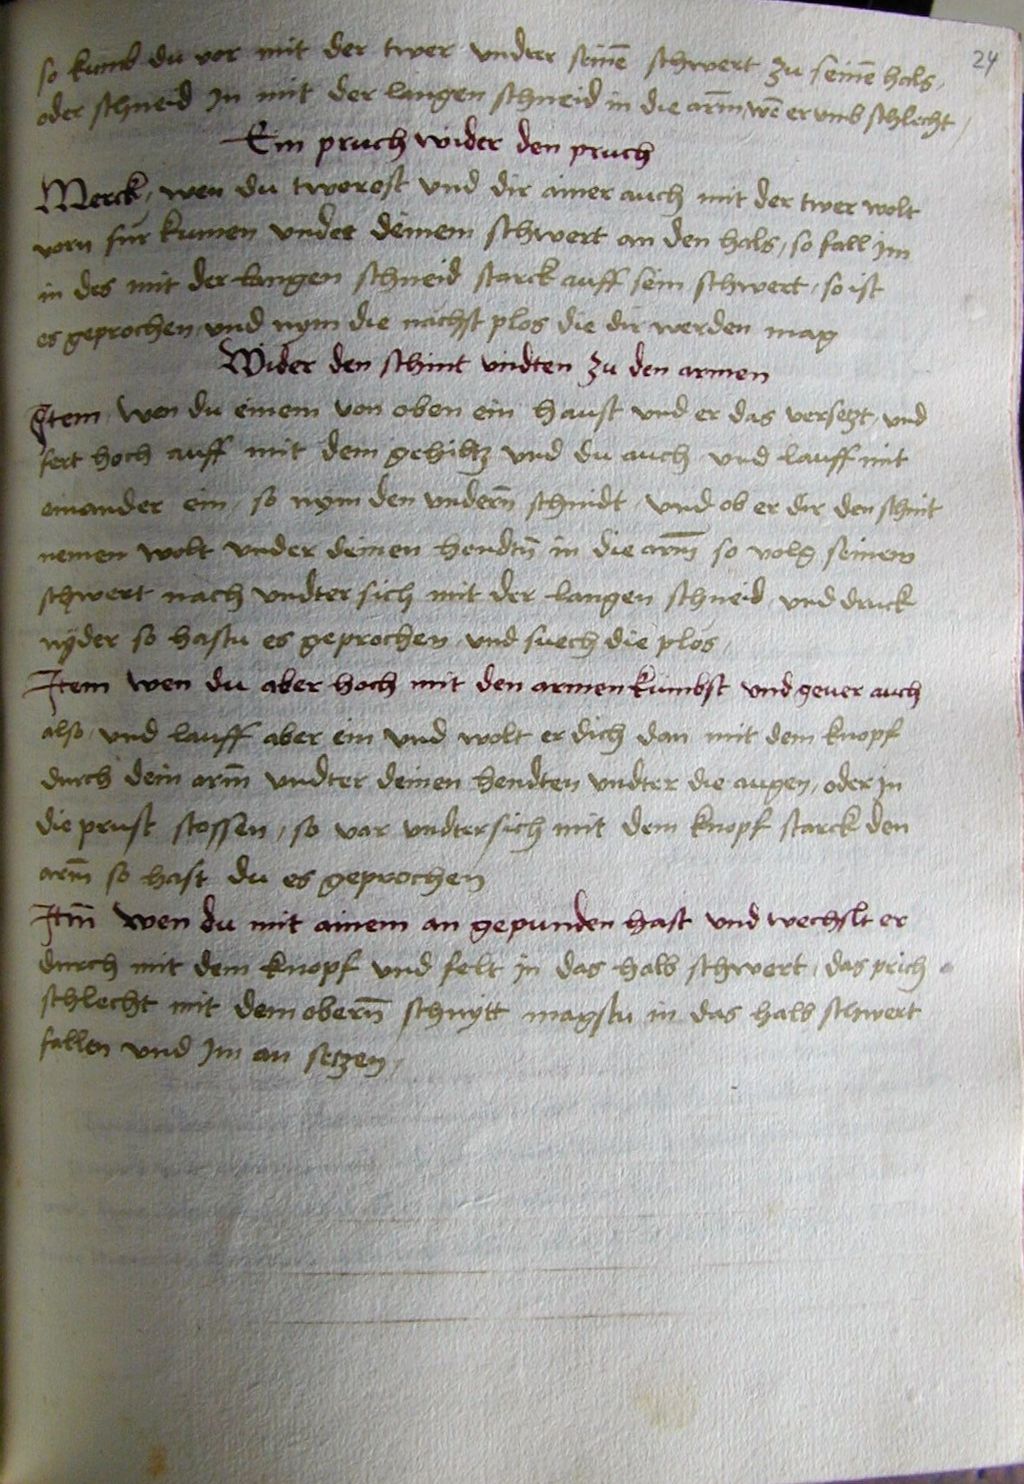 24
so kumb du vor mit der twer undter seinē schwert zu seinē hals,
oder schneid In mit der langen schneid in die arm̄, wē er umb schlecht,
Ein pruch wider den pruch
Merck, wen du twerest und dir ainer auch mit der twer wolt
vorn für kumen under deinem schwert an den hals, so fall im
in des mit der langen schneid starck auff sein schwert, so ist
es geprochen, und nym die nachst plos die dir werden mag
Wider den schint undten zu den armen
Item, wen du einem von oben ein haust und er das versetzt, und
fert hoch auff mit dem gehiltz und du auch, und lauff mit
einander ein, so nym den undern̄ schnidt, und ob er dir den schnit
nemen wolt under deinen hendtn̄ in die arm̄ so volg seinem
schwert nach undter sich mit der langen schneid, und druck
nÿder so hastu es geprochen, und suech die plos,
Item wen du aber hoch mit den armen kumbst und gener auch
also, und lauff aber ein und wolt er dich dan mit dem knopf
durch dein arm̄ undter deinen hendten undter die augen, oder in
die prust stossen, so var undter sich mit dem knopf starck den
arm̄ so hast du es geprochen
Itm̄ wen du mit ainem an gepunden hast und wechslt er
durch mit dem knopf und felt in das halb schwert, das prich
schlecht mit dem obern̄ schnytt magstu in das halb schwert
fallen und Im an setzen,